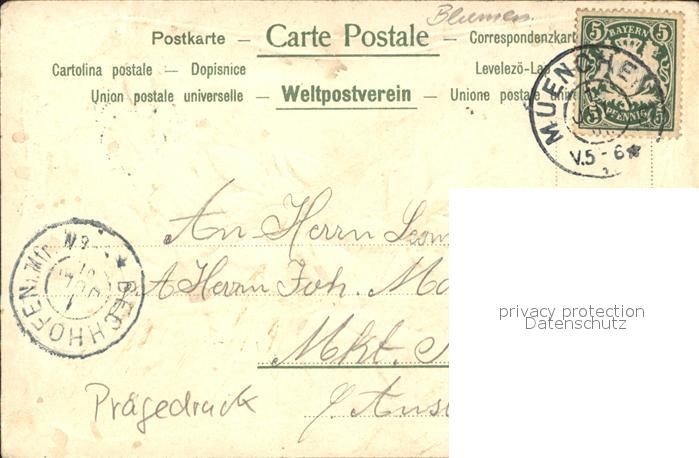 Blumen
Postkarte — Carte Postale — Correspondenzkart
Cartolina postale — Dopisnice Levelező-La
Union postale universelle — Weltpostverein — Unione postale
5 BAYERN 5
5 PFENNIG 5
MUENCHEN
V.5-6
BECHHOFEN i. Mfr.
An Herrn
Herrn Joh.
Mkt.
Prägedruck
privacy protection
Datenschutz